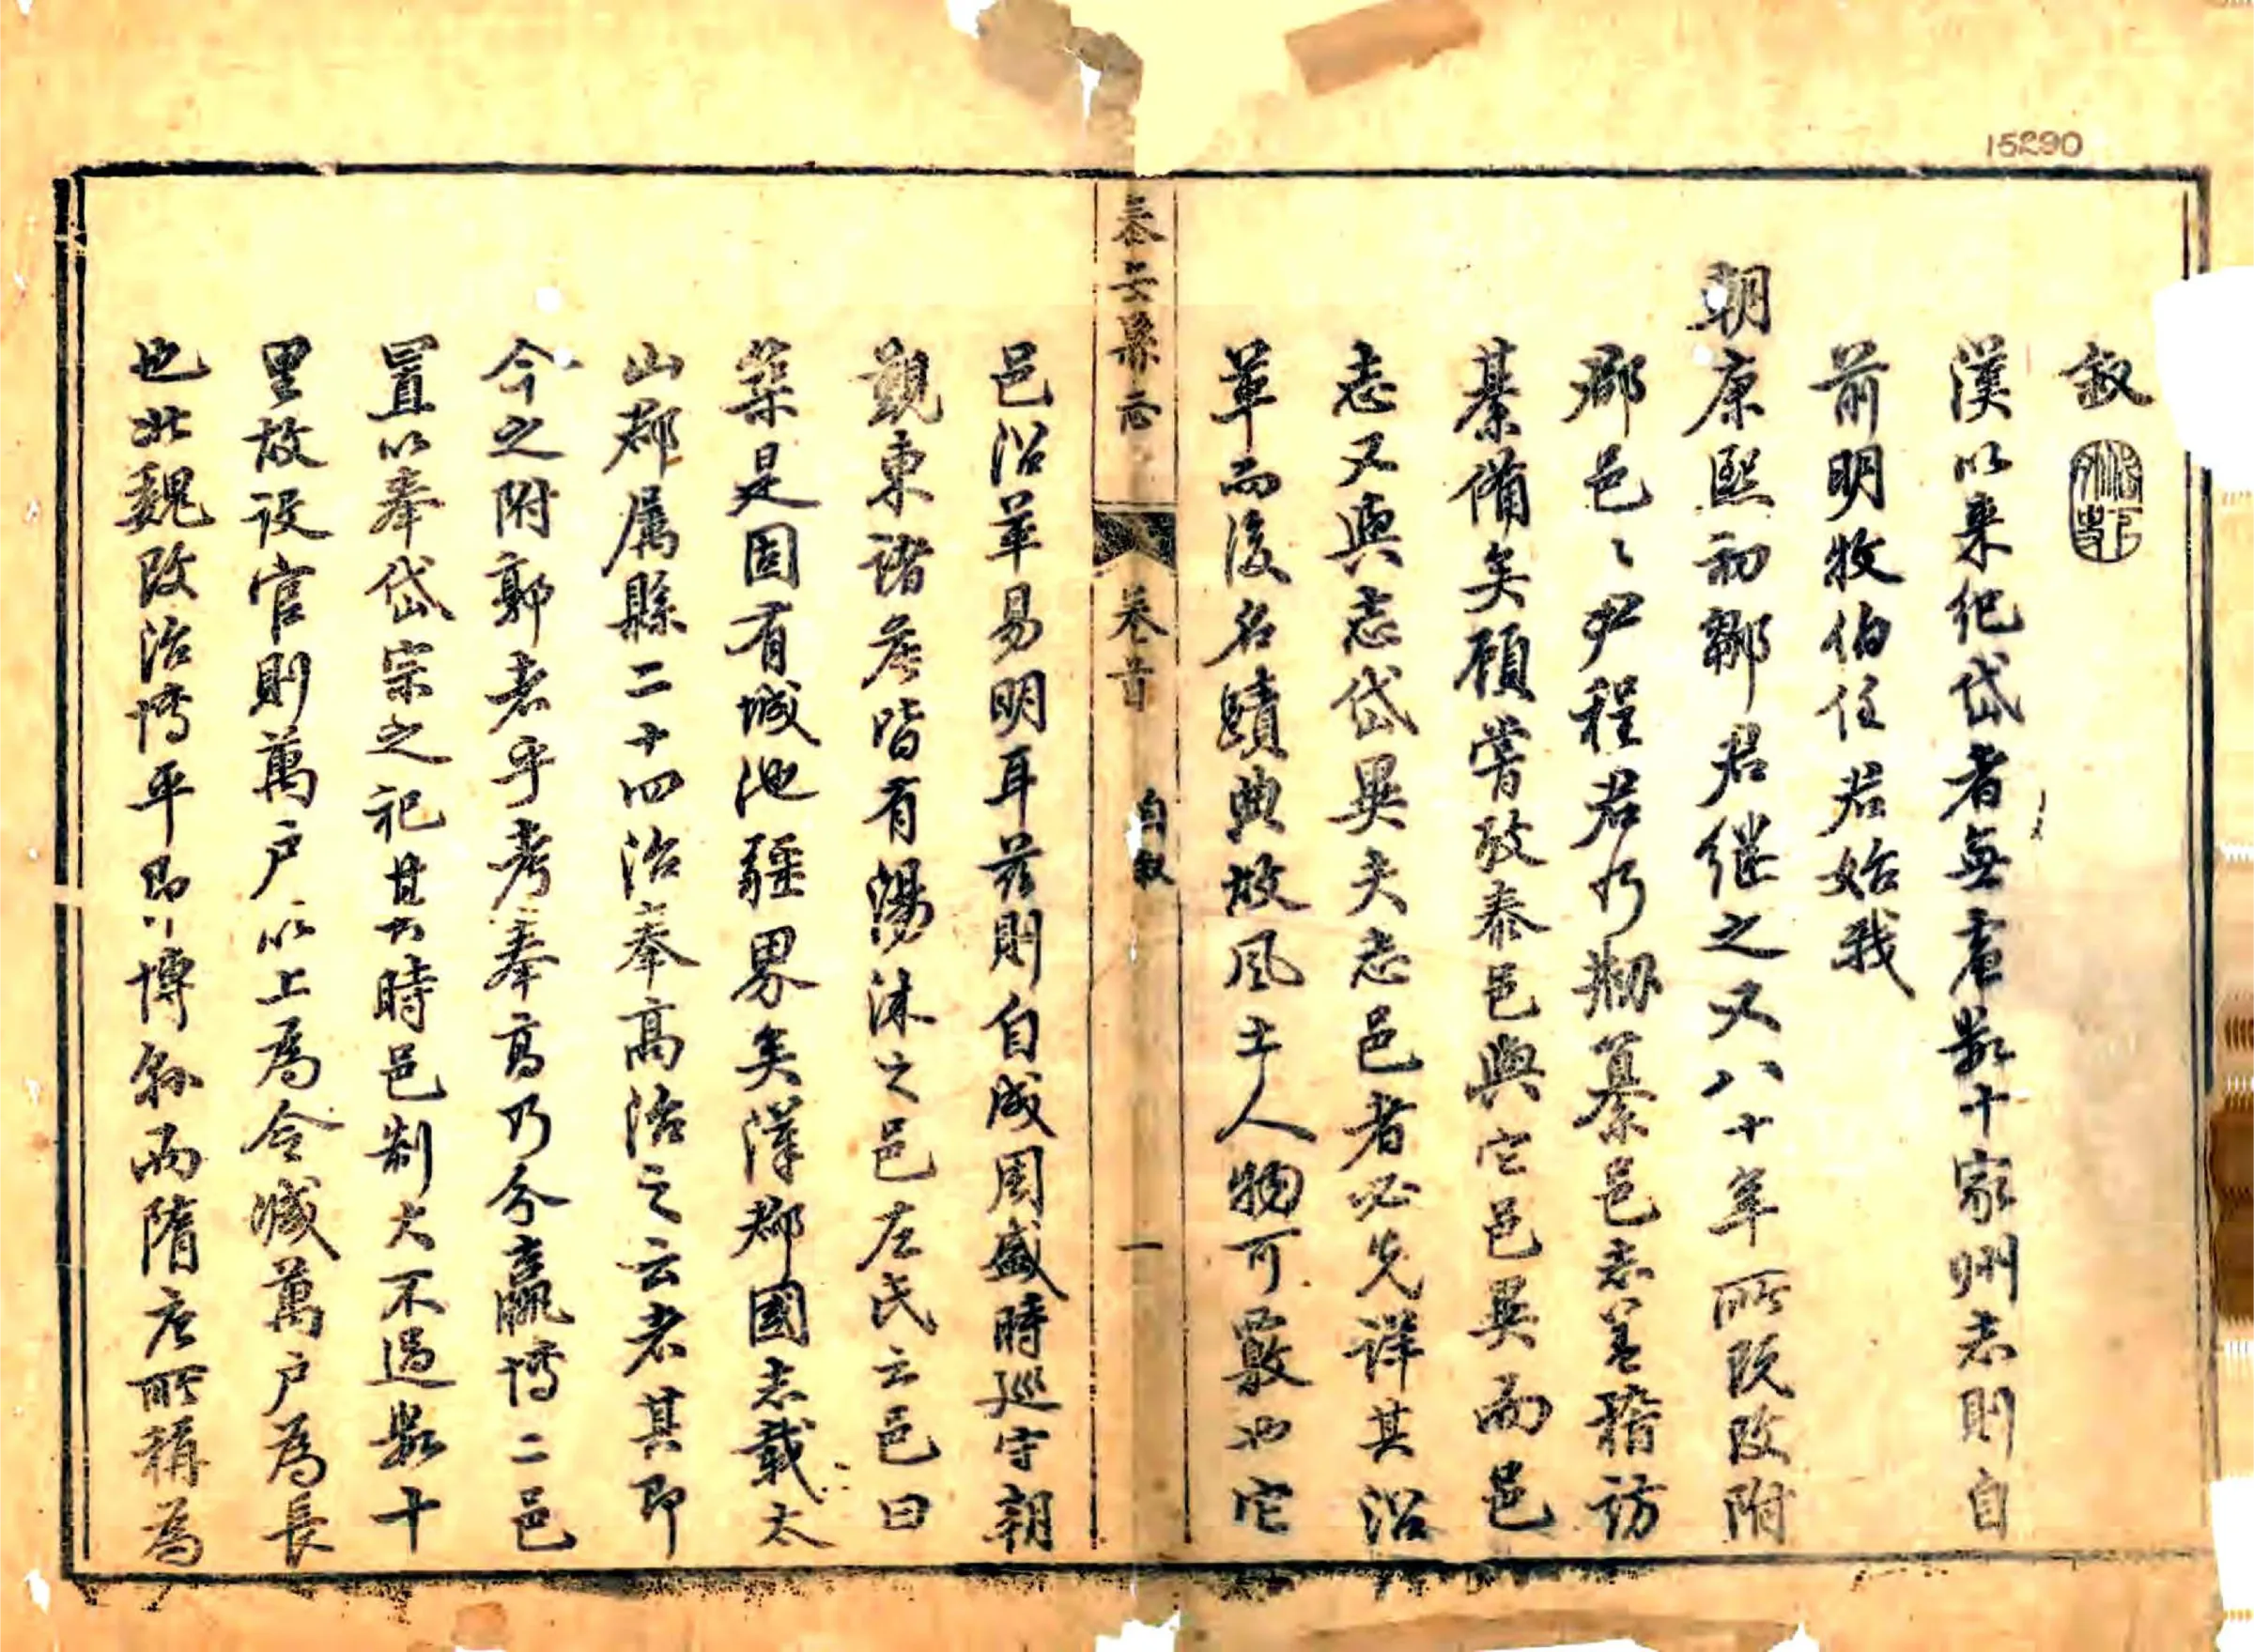 15290
叙
漢以来紀岱者無慮數十家州志則自
前明牧伯任君始我
朝康熙初鄒君継之又八十年所既改附
郡邑〻尹程君乃剙纂邑志蓋稽訪
綦備矣顧嘗攷泰邑與它邑異而邑
志又與志岱異夫志邑者必先详其沿
革而後名蹟典故風土人物可覈也它
泰安縣志
卷首
自叙
一
邑沿革易明耳兹則自成周盛時巡守朝
觀東諸矦皆有湯沐之邑左氏云邑曰
築是固有城池疆界矣漢郡國志載太
山郡属縣二十四治奉高治之云者其即
今之附郭者乎考奉高乃分嬴博二邑
置以奉岱宗之祀其時邑制大不過數十
里故设官則萬户以上為令减萬户為長
也北魏改治博平即博縣而隋唐所稱為